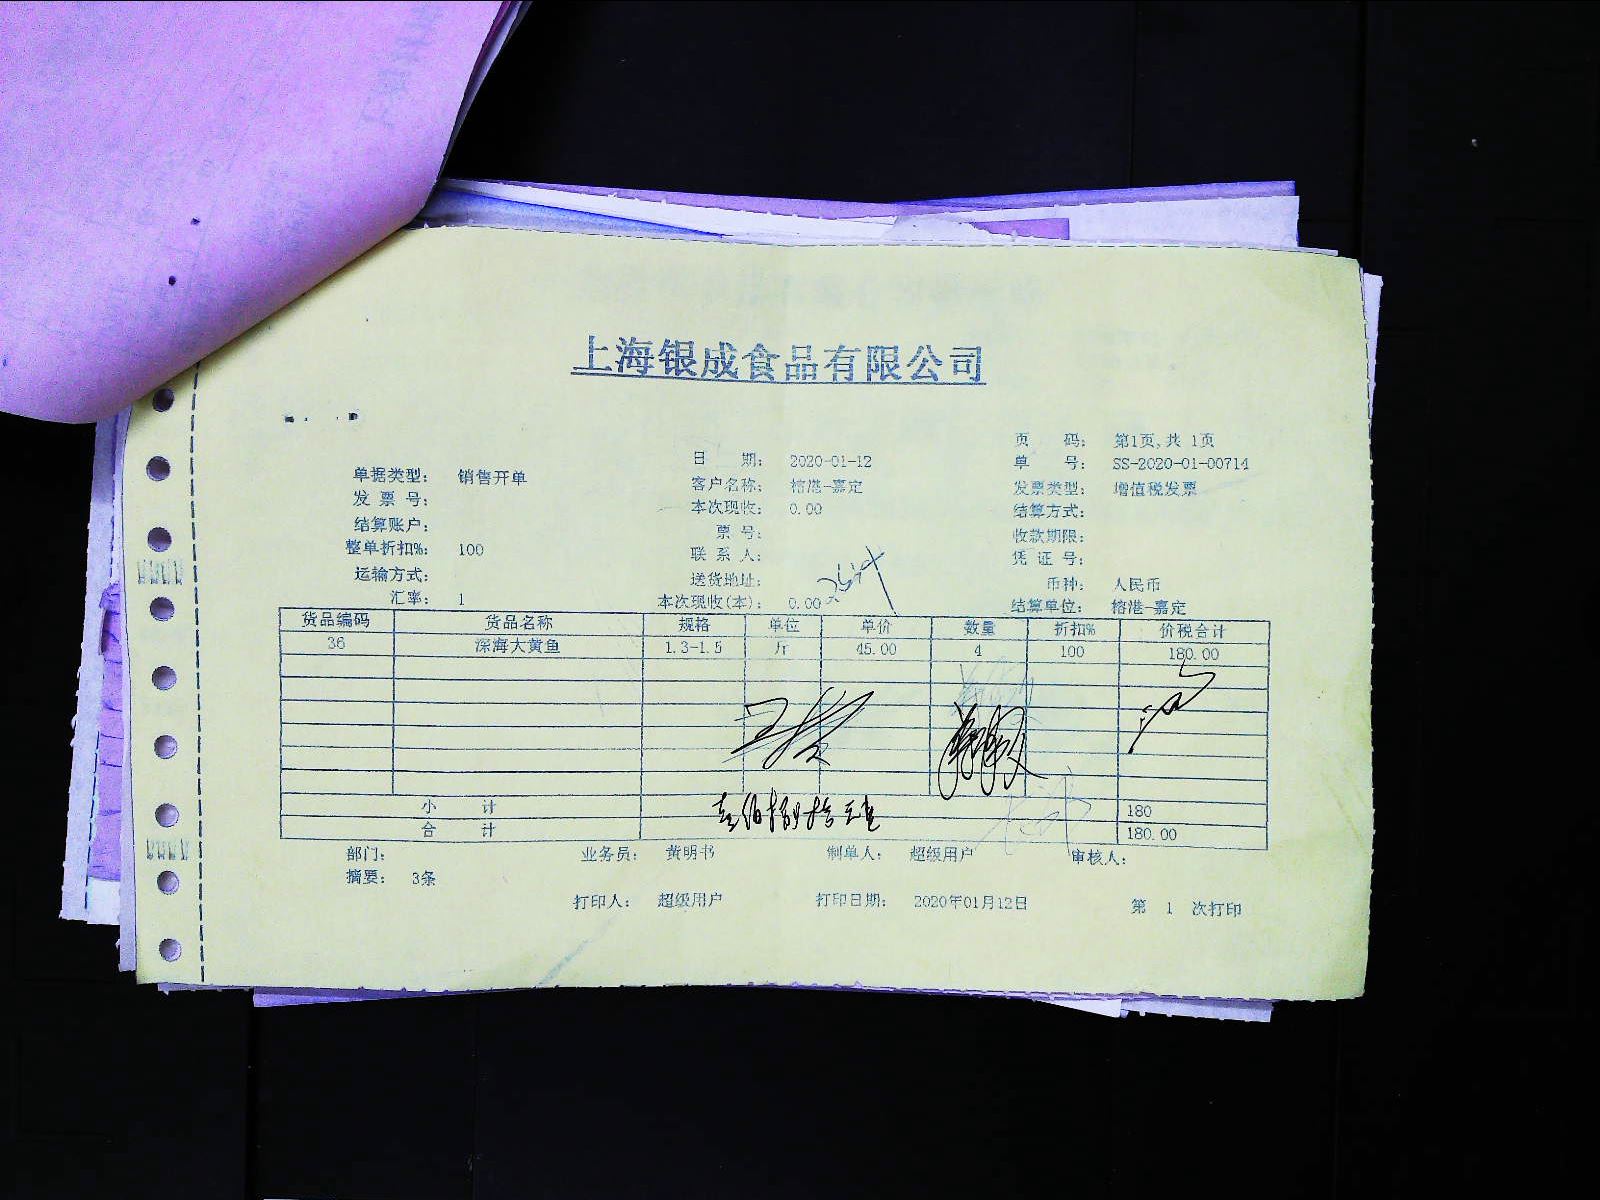 上海银成食品有限公司
页 码： 第1页,共 1页
日 期： 2020-01-12 单 号： SS-2020-01-00714
单据类型： 销售开单 客户名称： 榕港-嘉定 发票类型： 增值税发票
发 票 号： 本次现收： 0.00 结算方式：
结算账户： 票 号： 收款期限：
整单折扣%： 100 联 系 人： 凭 证 号：
运输方式： 送货地址： 币种： 人民币
汇率： 1 本次现收(本)： 0.00 结算单位： 榕港-嘉定
货品编码 货品名称 规格 单位 单价 数量 折扣% 价税合计
36 深海大黄鱼 1.3-1.5 斤 45.00 4 100 180.00
小 计 180
合 计 180.00
部门： 业务员： 黄明书 制单人： 超级用户 审核人：
摘要： 3条
打印人： 超级用户 打印日期： 2020年01月12日 第 1 次打印